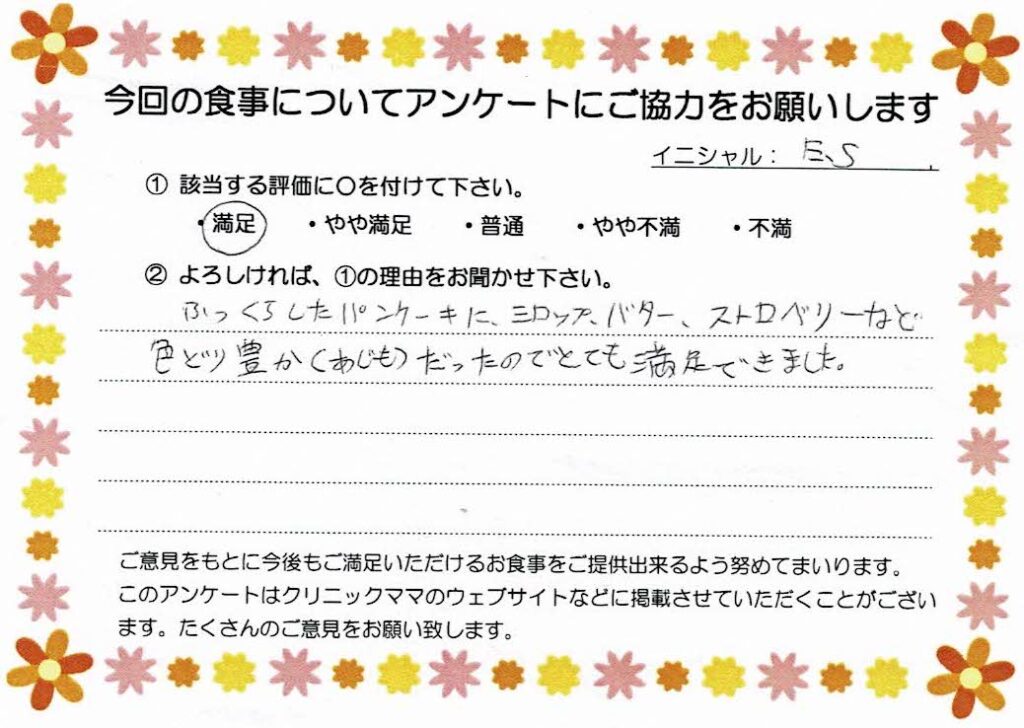 今回の食事についてアンケートにご協力をお願いします
イニシャル： E.S
① 該当する評価に〇を付けて下さい。
・満足 ・やや満足 ・普通 ・やや不満 ・不満
② よろしければ、①の理由をお聞かせ下さい。
ふっくらしたパンケーキに、シロップ、バター、ストロベリーなど
色どり豊か（あじも）だったのでとても満足できました。
ご意見をもとに今後もご満足いただけるお食事をご提供出来るよう努めてまいります。
このアンケートはクリニックママのウェブサイトなどに掲載させていただくことがござい
ます。たくさんのご意見をお願い致します。